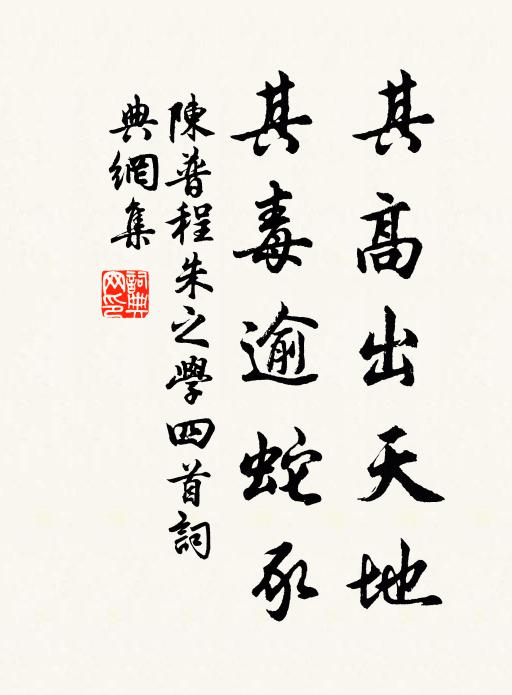 其高出天地
其毒逾蛇豕
陳普程朱之學四首詞
典網集
詞典
网印